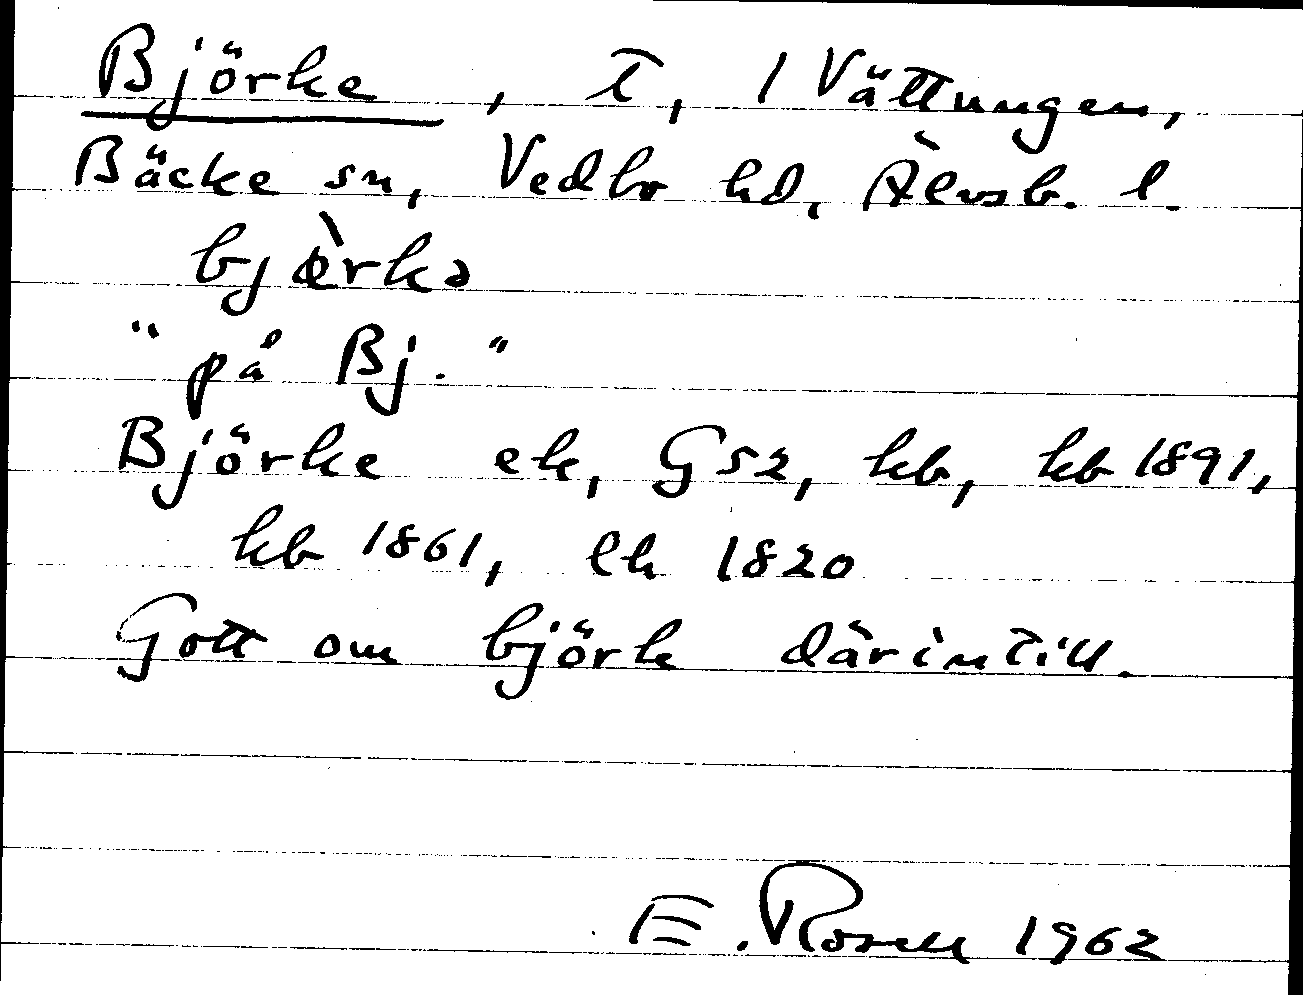 Björke, t, 1 Vättungen,
Bäcke sn, Vedbo hd, Älvsb. l.
bjæ̀rkə
"på Bj."
Björke ek, GS2, kb, hb 1891,
hb 1861, lh 1820
Gott om björk därintill.
E. Rosell 1962